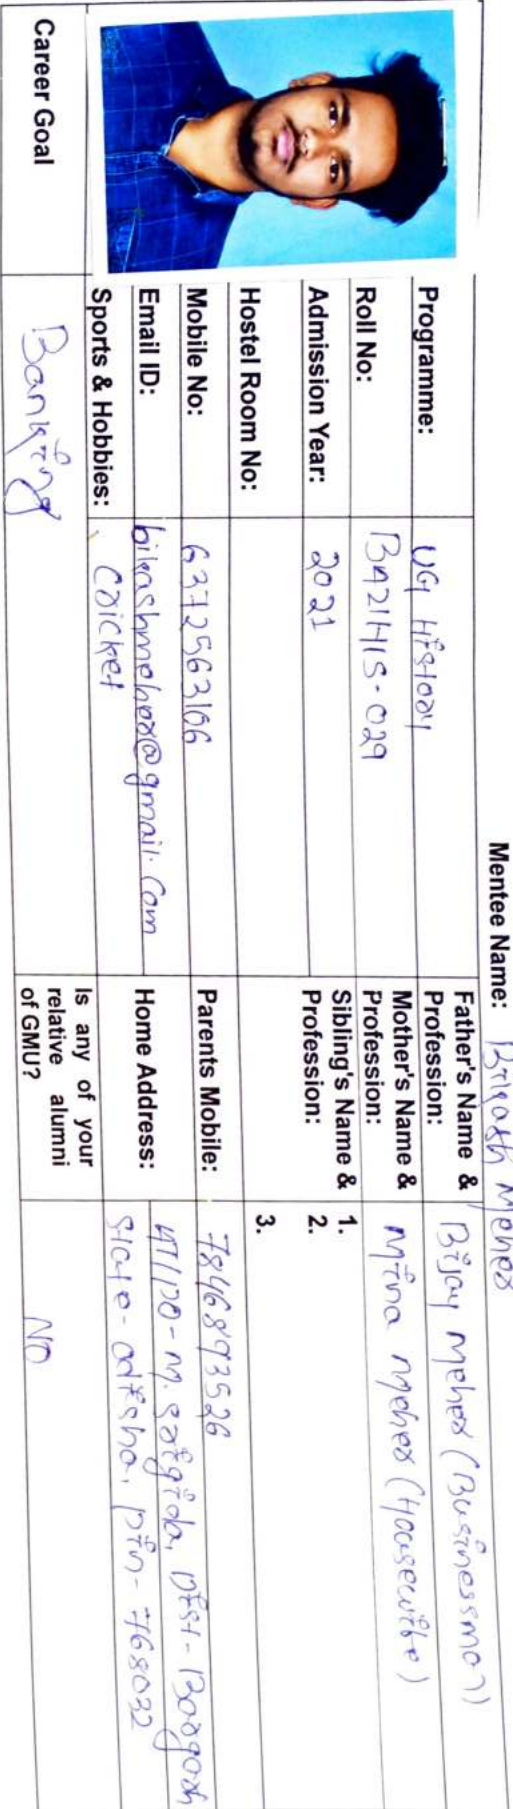 Mentee Name: Bikash Meher
Programme: UG History
Father's Name & Profession: Bijay Meher (Businessman)
Roll No: BA21HIS-029
Mother's Name & Profession: Mina Meher (Housewife)
Admission Year: 2021
Sibling's Name & Profession: 1.
2.
3.
Hostel Room No:
Mobile No: 6372563106
Parents Mobile: 7846893526
Email ID: bikashmeher@gmail.com
Home Address: AT/PO- M. Srigida, Dist- Bargarh
State- Odisha, Pin- 768032
Sports & Hobbies: Cricket
Career Goal
Banking
Is any of your
relative alumni
of GMU?
NO